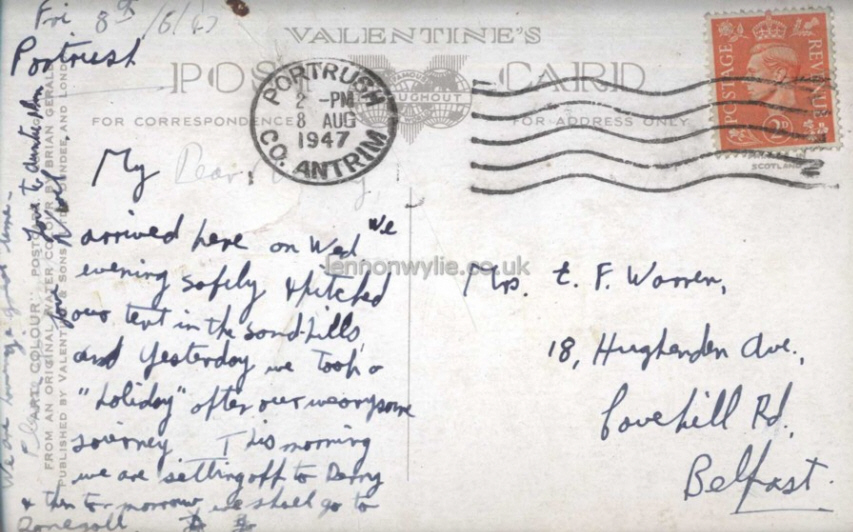 Fri 8th /8/47
Portrush
VALENTINE'S
POST CARD
FOR CORRESPONDENCE
FOR ADDRESS ONLY
PORTRUSH
2 -PM
8 AUG
1947
CO. ANTRIM
POSTAGE
REVENUE
My Dear
We
arrived here on Wed
evening safely & pitched
our tent in the sand-hills,
and yesterday we took a
"holiday" after our wearysome
journey This morning
we are setting off to Derry
& then to-morrow, we shall go to
Donegall.
Mrs. E. F. Warren,
18, Hughenden Ave.,
Cavehill Rd,
Belfast.
We are having a good time -
love to auntie
love
ART COLOUR POST
FROM AN ORIGINAL WATER COLOUR BY BRIAN GERALD
PUBLISHED BY VALENTINE & SONS LTD DUNDEE AND LONDON
SCOTLAND
lennonwylie.co.uk